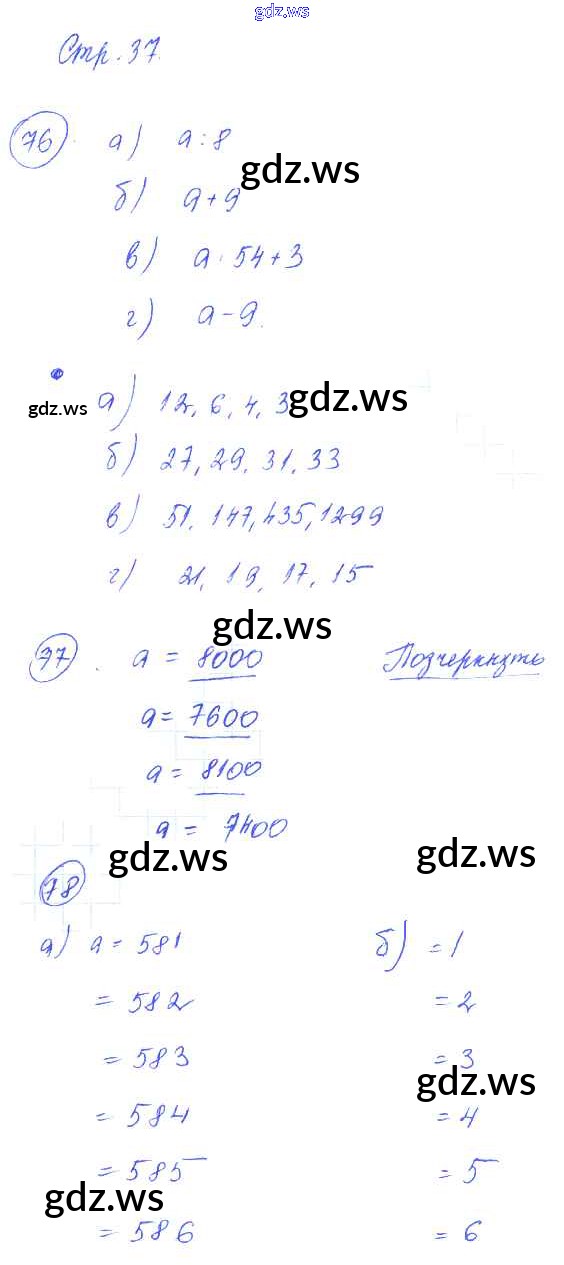 gdz.ws
Стр. 37.
76. а) a : 8
gdz.ws
б) a + 9
в) a · 54 + 3
г) a - 9.
gdz.ws а) 12, 6, 4, 3 gdz.ws
б) 27, 29, 31, 33
в) 51, 147, 435, 1299
г) 21, 19, 17, 15
gdz.ws
77. a = 8000 Подчеркнуть
a = 7600
a = 8100
a = 7400
gdz.ws gdz.ws
78
а) a = 581 б) = 1
= 582 = 2
= 583 = 3
gdz.ws
= 584 = 4
= 585 = 5
gdz.ws
= 586 = 6